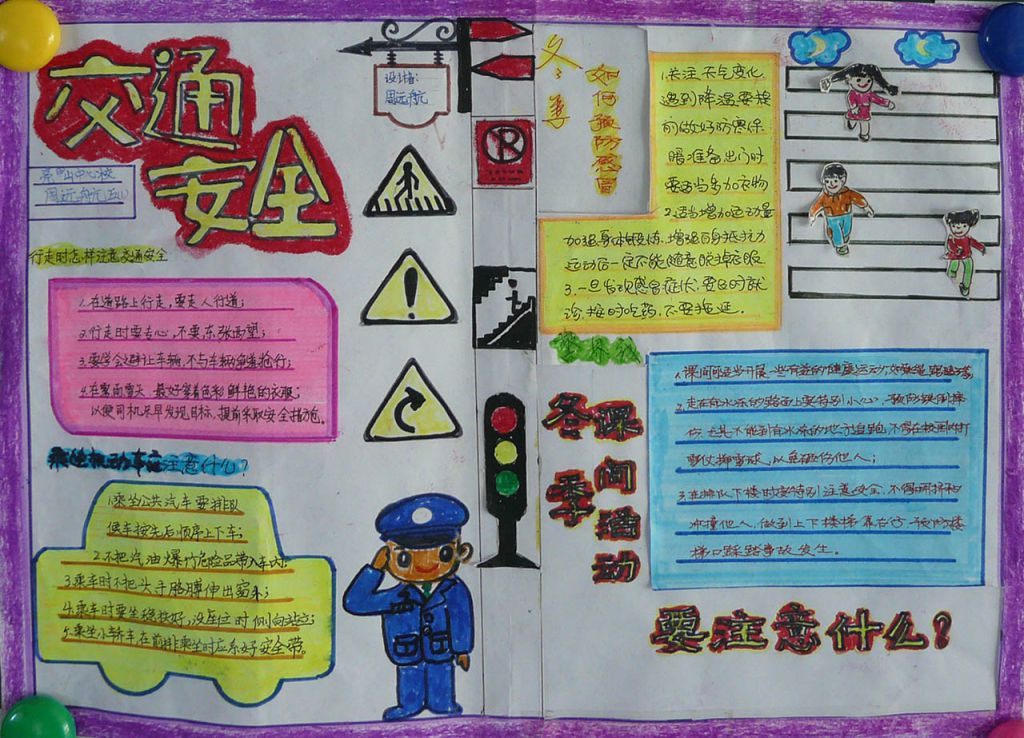 交通
安全
设计者:
周远航
中心校
行走时怎样注意交通安全
1.在道路上行走,要走人行道;
2.行走时要专心,不要东张西望;
3.要学会避让车辆,不与车辆争道抢行;
4.在雾雨雪天,最好穿着色彩鲜艳的衣服;
以便司机尽早发现目标,提前采取安全措施。
乘坐机动车应注意什么?
1.乘坐公共汽车要排队
候车按先后顺序上下车;
2.不把汽油爆竹危险品带入车内;
3.乘车时不把头手胳膊伸出窗外;
4.乘车时要坐稳扶好,没座位时侧向站立;
5.乘坐小轿车在前排乘坐时应系好安全带。
冬季
如何预防感冒
1.关注天气变化,
遇到降温要提
前做好防寒保
暖准备出门时
要适当多加衣物
2.适当增加运动量
加强身体锻炼,增强自身抵抗力
运动后一定不能随意脱掉衣服
3.一旦发现感冒症状,要及时就
诊,按时吃药,不要拖延。
冬季
课间活动
要注意什么?
1.课间适当开展一些有益的健康运动,如跳绳、踢毽球;
2.走在有水冻的路面上要特别小心,预防跌倒摔
伤,尤其不能到有水冻的地方追跑,不得在校园内打
雪仗掷雪球,以免砸伤他人;
3.在排队下楼时要特别注意安全,不得拥挤和
冲撞他人,做到上下楼梯靠右行,预防楼
梯口踩踏事故发生。